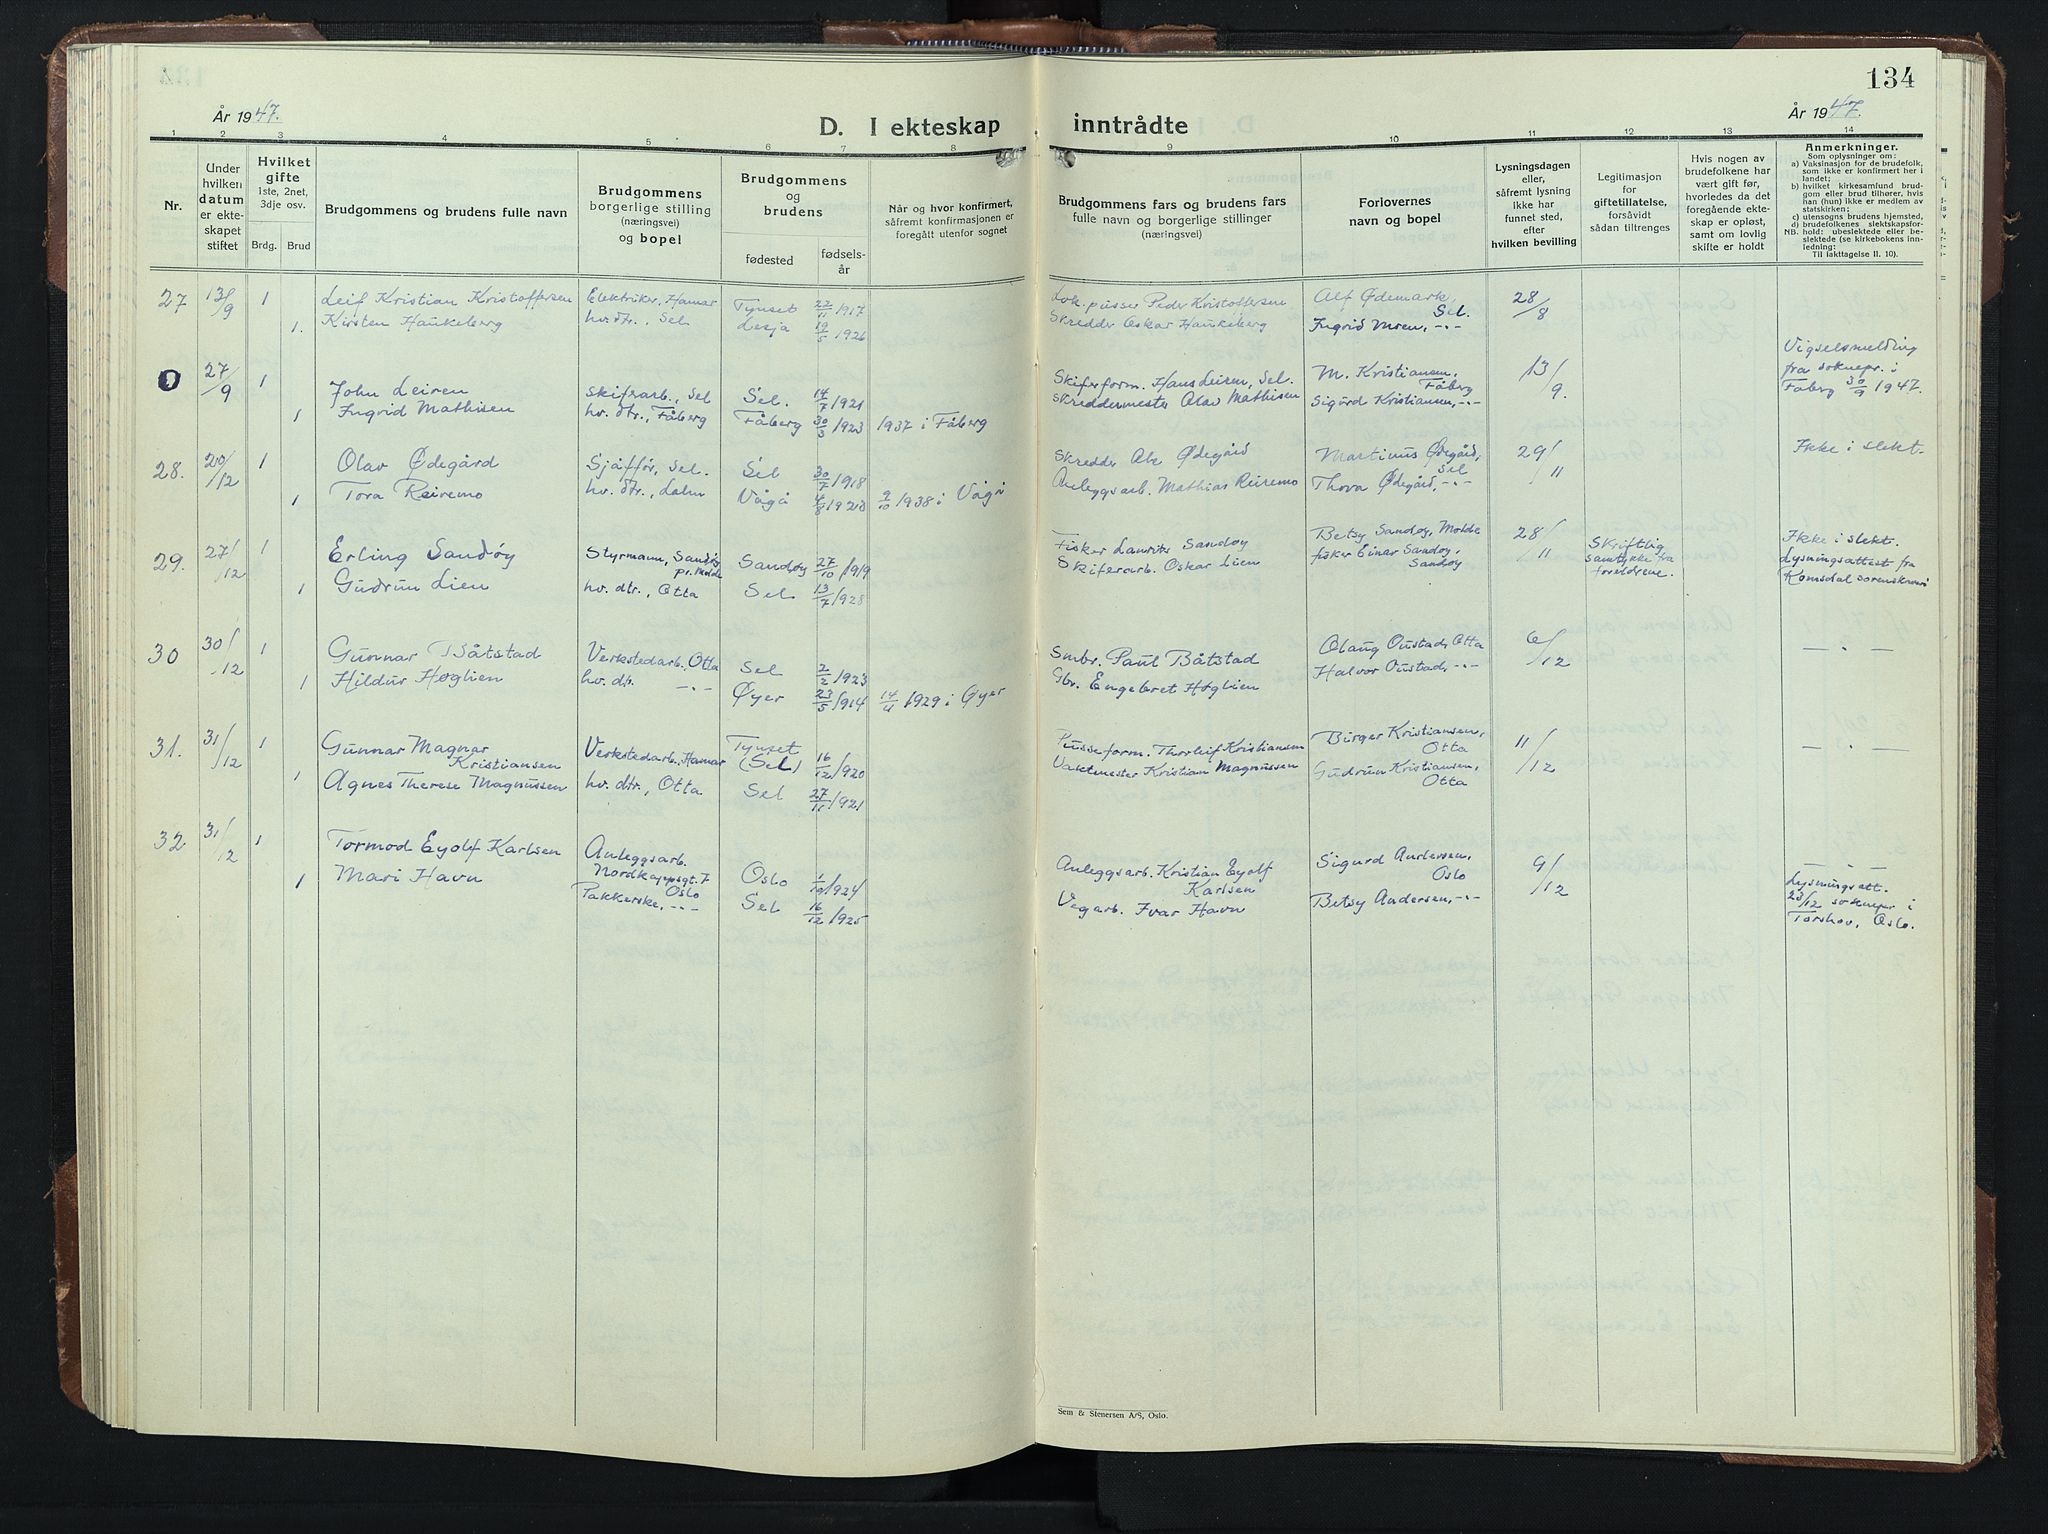 134
År 1947.
År 1947.
D. I ekteskap inntrådte
1 2 3 4 5 6 7 8 9 10 11 12 13 14
Nr.
Under hvilken datum er ekteskapet stiftet
Hvilket gifte
1ste, 2net, 3dje osv.
Brdg. Brud
Brudgommens og brudens fulle navn
Brudgommens borgerlige stilling (næringsvei) og bopel
Brudgommens og brudens
fødested
fødselsår
Når og hvor konfirmert,
såfremt konfirmasjonen er
foregått utenfor sognet
Brudgommens fars og brudens fars
fulle navn og borgerlige stillinger
(næringsvei)
Forlovernes
navn og bopel
Lysningsdagen
eller,
såfremt lysning
ikke har
funnet sted,
efter
hvilken bevilling
Legitimasjon
for
giftetillatelse,
forsåvidt
sådan tiltrenges
Hvis nogen av
brudefolkene har
vært gift før,
hvorledes da det
foregående ekte-
skap er opløst,
samt om lovlig
skifte er holdt
Anmerkninger.
Som oplysninger om:
a) Vaksinasjon for de brudefolk,
som ikke er konfirmert her i
landet;
b) hvilket kirkesamfund brud-
gom eller brud tilhører, hvis
han (hun) ikke er medlem av
statskirken;
c) utensogns brudens hjemsted,
d) brudefolkenes slektskapsfor-
NB. hold: ubeslektede eller be-
slektede (se kirkebokens inn-
ledning:
Til Iakttagelse II. 10).
27 13/9 1 Leif Kristian Kristoffersen Elektriker, Hamar Tynset 22/11 1917 Lok.pusser Peder Kristoffersen Alf Ødemark, Sel. 28/8
1. Kirsten Haukeberg hv. dtr., Sel Lesja 19/5 1926 Skredder Oskar Haukeberg Ingrid Moen, -"-
0 27/9 1 John Leiren Skifrarb., Sel Sel. 14/7 1921 Skiferform. Hans Leiren, Sel. M. Kristiansen, Fåberg 13/9. Vigselsmelding
fra soknepr. i
Fåberg 30/9 1947.
1 Ingrid Mathisen hv. dtr., Fåberg Fåberg 30/3 1923 1937 i Fåberg Skreddermester Olav Mathisen Sigurd Kristiansen, -"-
28. 20/12 1 Olav Ødegård Sjåffør, Sel. Sel 30/7 1918 Skredder Ødegård Martinus Ødegård, Sel 29/11 Ikke i slekt.
1 Tora Reiremo hv. dtr., Vågå 1938 i Vågå Anleggsarb. Mathias Reiremo Thova Ødegård, -"-
29. 27/12 1 Erling Sandøy Styrmann, Sandøy pr. Molde Sandøy 27/10 1919 Fisker Laurits Sandøy Betsy Sandøy, Molde 28/11 Skriftlig
samtykke fra
foreldrene. Ikke i slekt.
Lysningsattest fra
Romsdal sorenskriveri
1 Gudrun Lien hv. dtr., Otta Sel 13/7 1928 Skiferarb. Oskar Lien fisker Einar Sandøy, Sandøy
30 30/12 1 Gunnar Båtstad Verkstedarb. Otta Sel 2/2 1923 Smbr. Paul Båtstad Olaug Oustad, Otta 6/12 — " —
1 Hildur Høglien hv. dtr. -"- Øyer 23/5 1914 14/4 1929 i Øyer Gbr. Engebret Høglien Halvor Oustad, -"-
31. 31/12 1 Gunnar Magnar Kristiansen Verkstedarb., Hamar Tynset (Sel) 16/12 1920 Pusseform. Thorleif Kristiansen Birger Kristiansen, Otta 11/12 — " —
1 Agnes Therese Magnussen hv. dtr., Otta Sel 27/11 1921 Vaktmester Kristian Magnussen Gudrun Kristiansen, Otta
32 31/12 1 Tormod Eyolf Karlsen Anleggsarb. Nordkappsgt. 7 Oslo Oslo 1/10 1924 Anleggsarb. Kristian Eyolf Karlsen Sigurd Andersen, Oslo 9/12 — " —
Lysningsatt.
23/12 soknepr i
Torshov, Oslo.
1 Mari Havn Pakkerske, -"- Sel 16/12 1925 Vegarb. Ivar Havn Betsy Andersen, -"-
Sem & Stenersen A/S, Oslo.